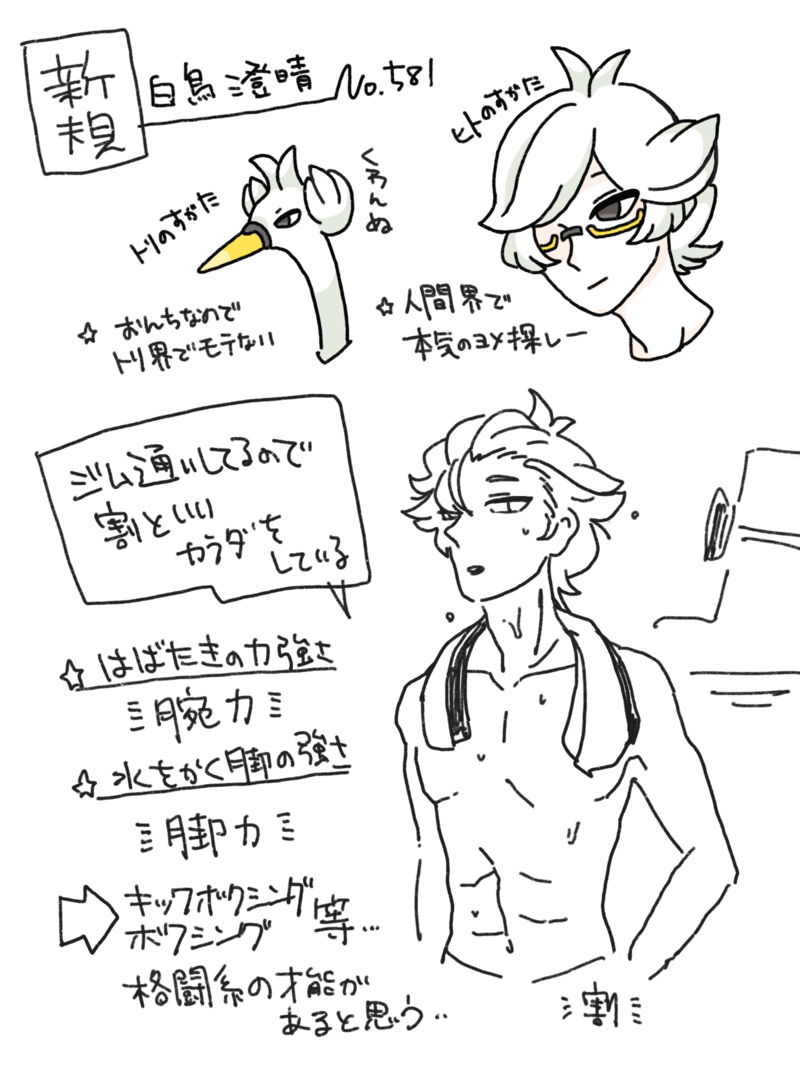 新規
白鳥 澄晴 No.581
ヒトのすがた
トリのすがた
くろんぬ
☆ おんちなので
トリ界でモテない
☆ 人間界で
本気のヨメ探しー
ジム通いしてるので
割といい
カラダを
している
☆ はばたきの力強さ
腕力
☆ 水をかく脚の強さ
脚力
キックボクシング
ボクシング 等…
格闘系の才能が
あると思う…
割